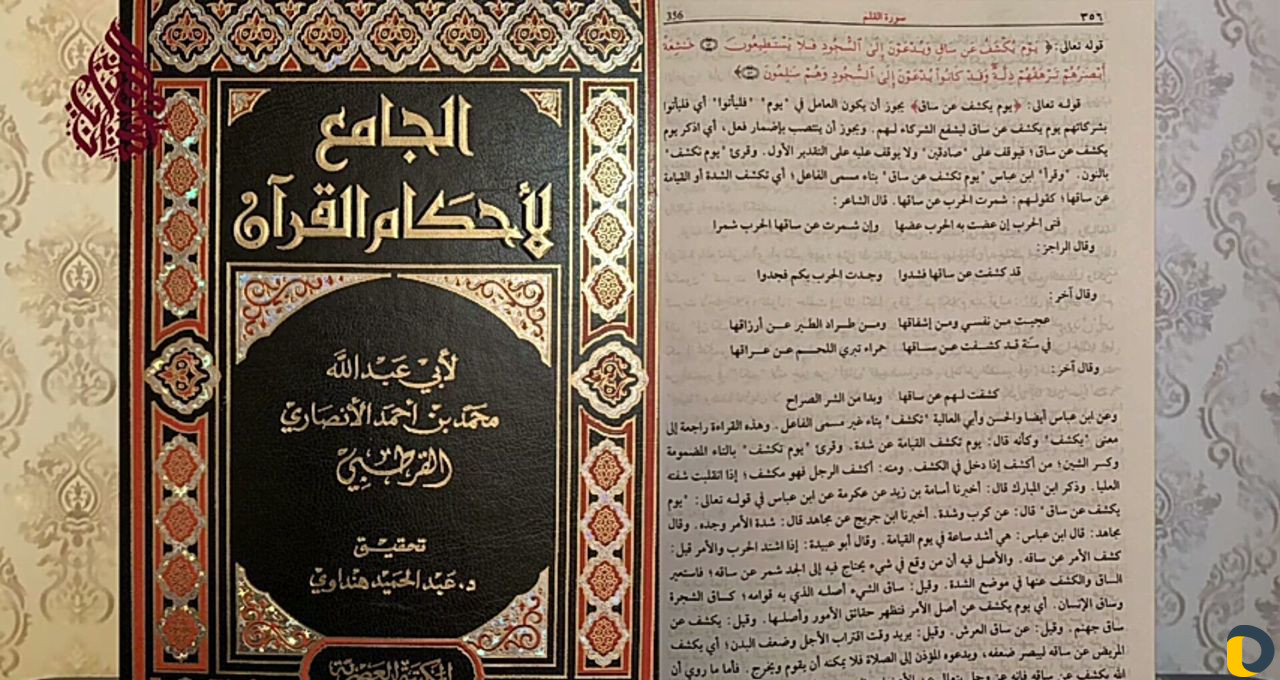 الجامع
لأحكام القرآن
لأبي عبد الله
محمد بن أحمد الأنصاري
القرطبي
تحقيق
د. عبد الحميد هنداوي
المكتبة العصرية
٣٥٦ سورة القلم 356
قوله تعالى: ﴿ يَوْمَ يُكْشَفُ عَن سَاقٍ وَيُدْعَوْنَ إِلَى ٱلسُّجُودِ فَلَا يَسْتَطِيعُونَ ۝ خَـٰشِعَةً
أَبْصَـٰرُهُمْ تَرْهَقُهُمْ ذِلَّةٌ وَقَدْ كَانُوا۟ يُدْعَوْنَ إِلَى ٱلسُّجُودِ وَهُمْ سَـٰلِمُونَ ۝ ﴾
قوله تعالى: ﴿يوم يكشف عن ساق﴾ يجوز أن يكون العامل في "يوم" "فليأتوا" أي فليأتوا
بشركائهم يوم يكشف عن ساق ليشفع الشركاء لهم. ويجوز أن ينتصب بإضمار فعل، أي اذكر يوم
يكشف عن ساق؛ فيوقف على "صادقين" ولا يوقف عليه على التقدير الأول. وقرئ "يوم نكشف"
بالنون. "وقرأ" ابن عباس "يوم تكشف عن ساق" بتاء مسمى الفاعل؛ أي تكشف الشدة أو القيامة
عن ساقها؛ كقولهم: شمرت الحرب عن ساقها. قال الشاعر:
فتى الحرب إن عضت به الحرب عضها وإن شمرت عن ساقها الحرب شمرا
وقال الراجز:
قد كشفت عن ساقها فشدوا وجدت الحرب بكم فجدوا
وقال آخر:
عجبت من نفسي ومن إشفاقها ومن طراد الطير عن أرزاقها
في سنة قد كشفت عن ساقها حمراء تبري اللحم عن عراقها
وقال آخر:
كشفت لهم عن ساقها وبدا من الشر الصراح
وعن ابن عباس أيضا والحسن وأبي العالية "تكشف" بتاء غير مسمى الفاعل. وهذه القراءة راجعة إلى
معنى "يكشف" وكأنه قال: يوم تكشف القيامة عن شدة. وقرئ "يوم تكشف" بالتاء المضمومة
وكسر الشين؛ من أكشف إذا دخل في الكشف. ومنه: أكشف الرجل فهو مكشف؛ إذا انقلبت شفته
العليا. وذكر ابن المبارك قال: أخبرنا أسامة بن زيد عن عكرمة عن ابن عباس في قوله تعالى: "يوم
يكشف عن ساق" قال: عن كرب وشدة. أخبرنا ابن جريج عن مجاهد قال: شدة الأمر وجده. وقال
مجاهد: قال ابن عباس: هي أشد ساعة في يوم القيامة. وقال أبو عبيدة: إذا اشتد الحرب والأمر قيل:
كشف الأمر عن ساقه. والأصل فيه أن من وقع في شيء يحتاج فيه إلى الجد شمر عن ساقه؛ فاستعير
الساق والكشف عنها في موضع الشدة. وقيل: ساق الشيء أصله الذي به قوامه؛ كساق الشجرة
وساق الإنسان. أي يوم يكشف عن أصل الأمر فتظهر حقائق الأمور وأصلها. وقيل: يكشف عن
ساق جهنم. وقيل: عن ساق العرش. وقيل: يريد وقت اقتراب الأجل وضعف البدن؛ أي يكشف
المريض عن ساقه ليبصر ضعفه، ويدعوه المؤذن إلى الصلاة فلا يمكنه أن يقوم ويخرج. فأما ما روي أن
الله يكشف عن ساقه فإنه عز وجل يتعالى عن